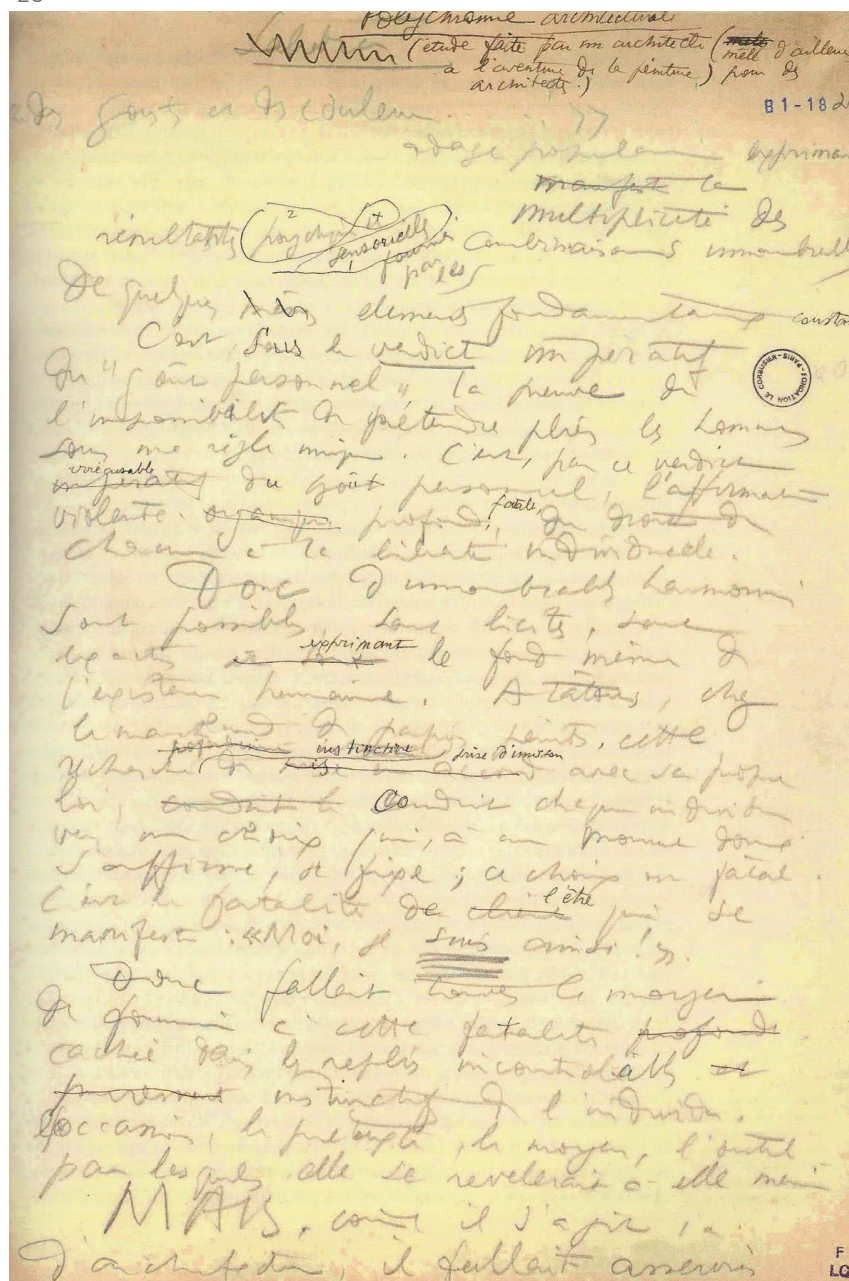 Polychromie architecturale
(étude faite par un architecte (mêlé d'ailleurs
à l'aventure de la peinture) pour des
architectes.)
B1-18 2
« des gouts et des couleurs . . . . »
adage populaire exprimant
manifeste la
multiplicité des
résultats psychiques 2 et sensorielles 1 fournis par les combinaisons innombrables
De quelques éléments fondamentaux constants
C'est, sous le verdict impératif
du "goût personnel" la preuve de
l'impossibilité de prétendre plier les hommes
sous une règle unique. C'est, par ce verdict
irrécusable
impératif du goût personnel, l'affirmation
violente. profonde, fatale, du droit de
chacun à la liberté individuelle.
Donc d'innombrables harmonies
sont possibles, sont licites, sont
exactes exprimant le fond même de
l'existence humaine. A tâtons, chez
le marchand de papiers peints, cette
profonde instinctive prise d'unisson
recherche accord avec sa propre
loi, conduit le Conduit chaque individu
vers un choix qui, à un moment donné
s'affirme, se fixe ; ce choix est fatal.
C'est la fatalité de l'être qui se
manifeste : «Moi, je suis ainsi ! ».
Donc fallait trouver le moyen
de fournir à cette fatalité profonde
cachée dans les replis incontrolables et
purement instinctifs de l'individu.
l'occasion, le prétexte, le moyen, l'outil
par lesquels elle se révélerait à elle même
MAIS, comme il s'agit ici
d'architecture, il fallait asservir
FONDATION LE CORBUSIER - PARIS
F
LC